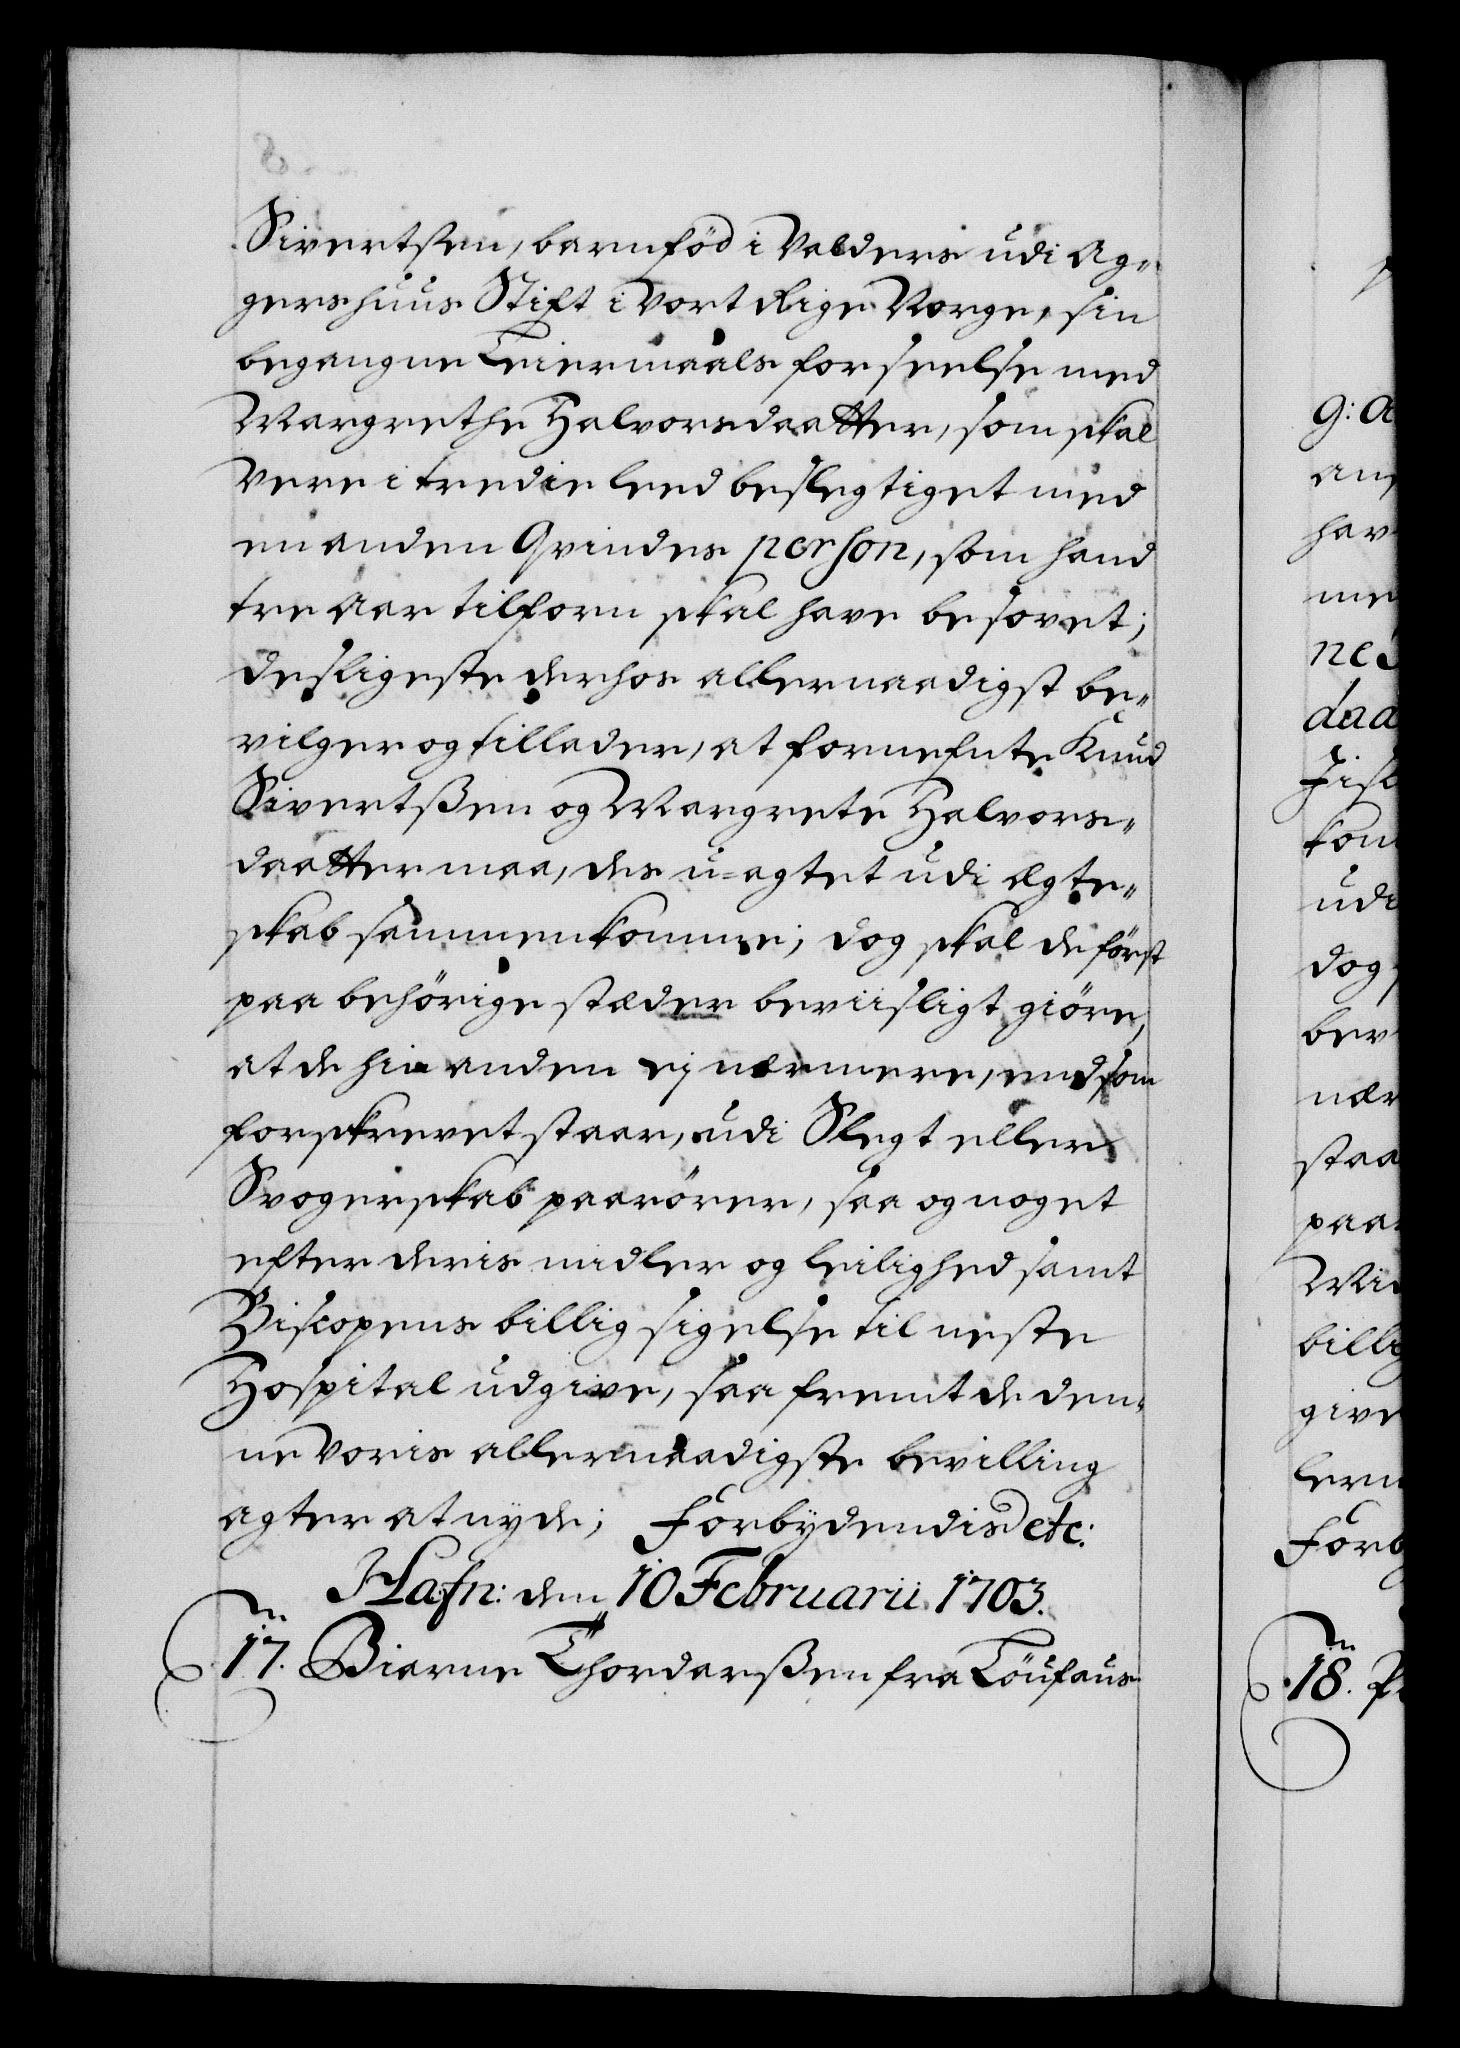 Sivertsen, barnfød i Valders udi Ag-
gershuus Stift i vort Rige Norge, sin
begangne Leiermaals forseelse med
Margrethe Halvorsdaatter, som skal
være i tredie leed beslegtiget med
en anden Qvindes person, som hand
tre Aar tilforn skal have besovet;
desligeste derhos allernaadigst be-
vilger og tillader, at fornefnte Knud
Sivertßen og Margrete Halvors-
daatter maa, des u-agtet udi Ægte-
skab sammenkomme; dog skal de først
paa behörige stæder beviisligt giöre,
at de hin anden ej nærmere, end som
forskrevet staar, udi Slegt eller
Svogerskab paarörer, saa og noget
efter deris midler og leilighed samt
Biscopens billig sigelse til neste
Hospital udgive, saa fremt de den-
ne Voris allernaadigste bevilling
agter at nyde; Forbydendis etc:
Hafn: den 10 Februarii 1703.
17. Biarne Thordarßen fra Löufaus
g: A
ans
hav
me
ned
daa
Jisl
kom
udi
dog
bev
nær
staa
paa
Mid
billi
give
lern
Forb
18. P